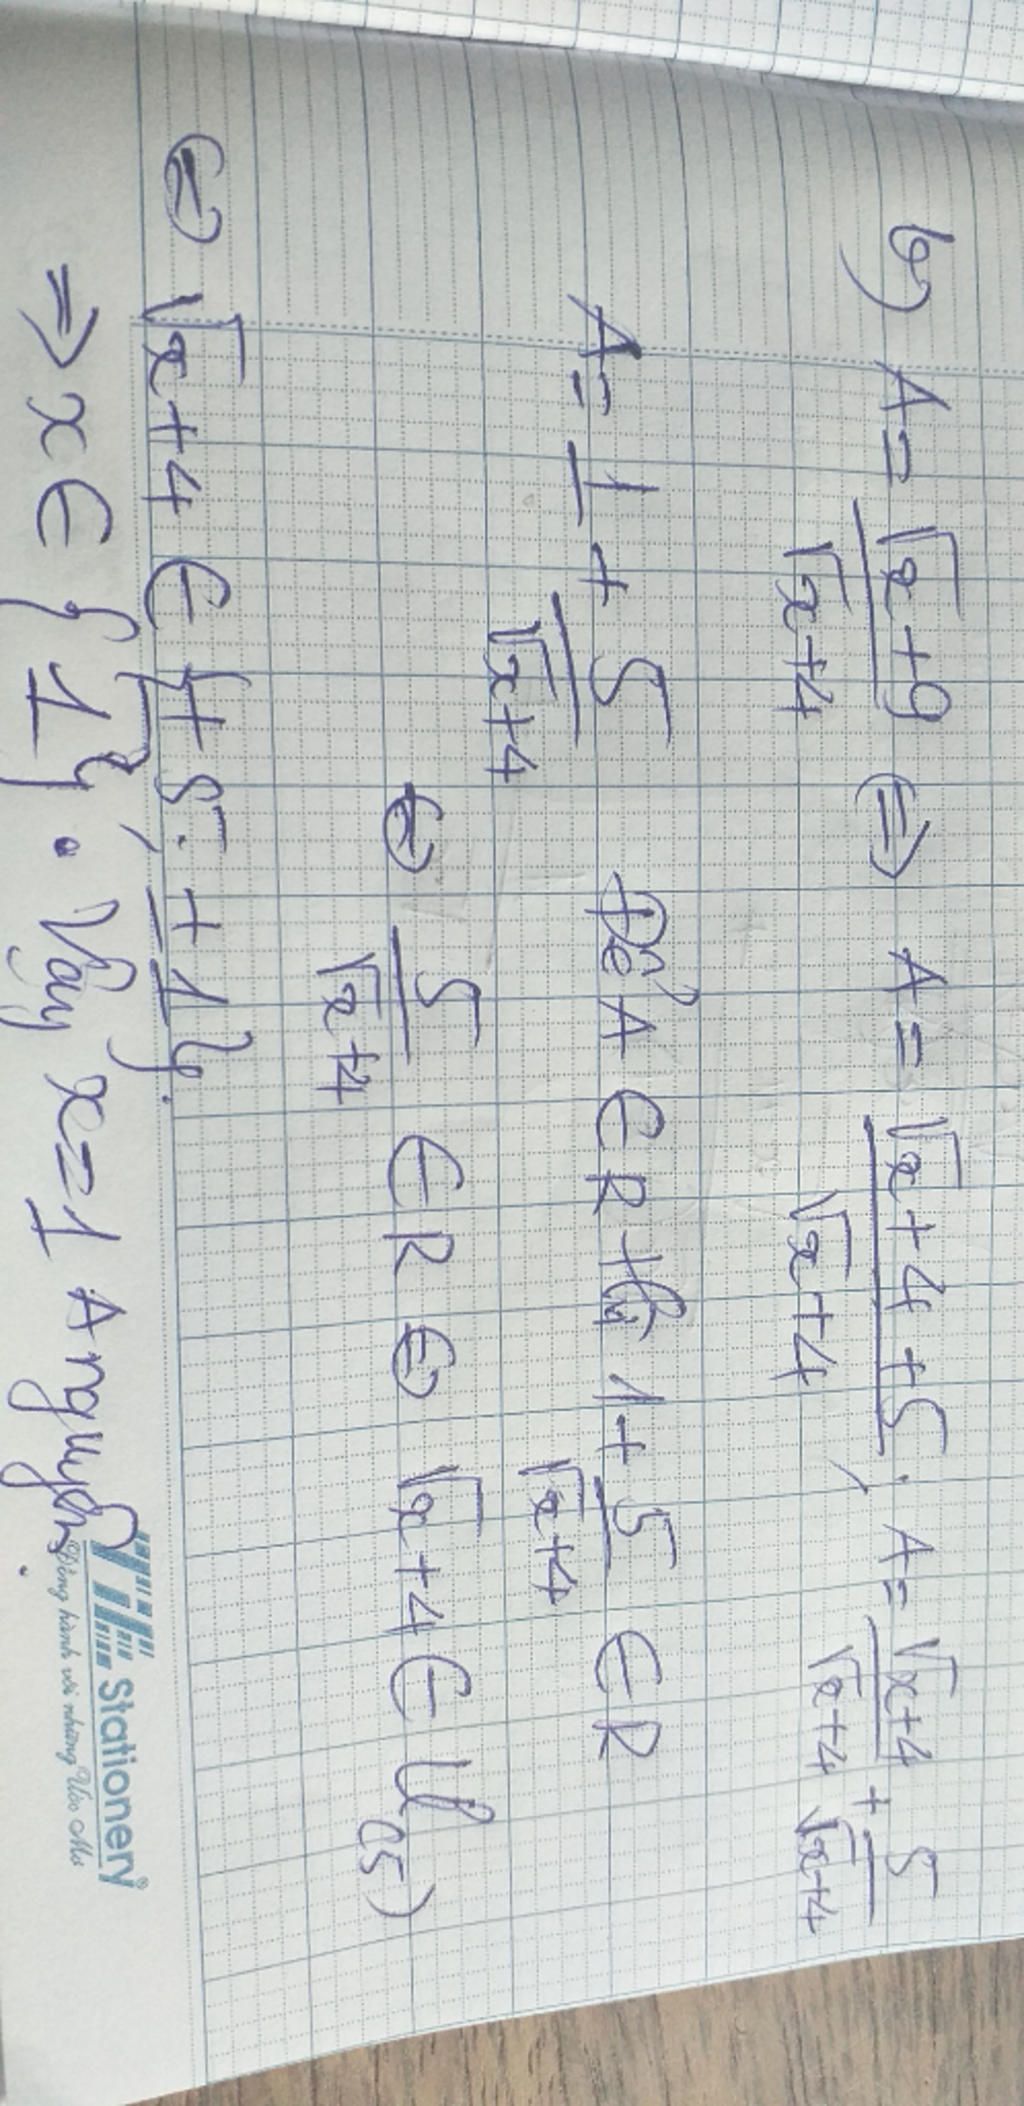 b) A = \frac{\sqrt{x}+9}{\sqrt{x}+4} ⇒ A = \frac{\sqrt{x}+4+5}{\sqrt{x}+4}; A = \frac{\sqrt{x}+4}{\sqrt{x}+4} + \frac{5}{\sqrt{x}+4}
A = 1 + \frac{5}{\sqrt{x}+4} Để A ∈ R thì 1 + \frac{5}{\sqrt{x}+4} ∈ R
⇔ \frac{5}{\sqrt{x}+4} ∈ R ⇔ \sqrt{x}+4 ∈ Ư(5)
⇔ \sqrt{x}+4 ∈ {±5; ±1}
⇒ x ∈ {1}. Vậy x=1 A nguyên.
ViE Stationery®
Đồng hành với những Ước Mơ